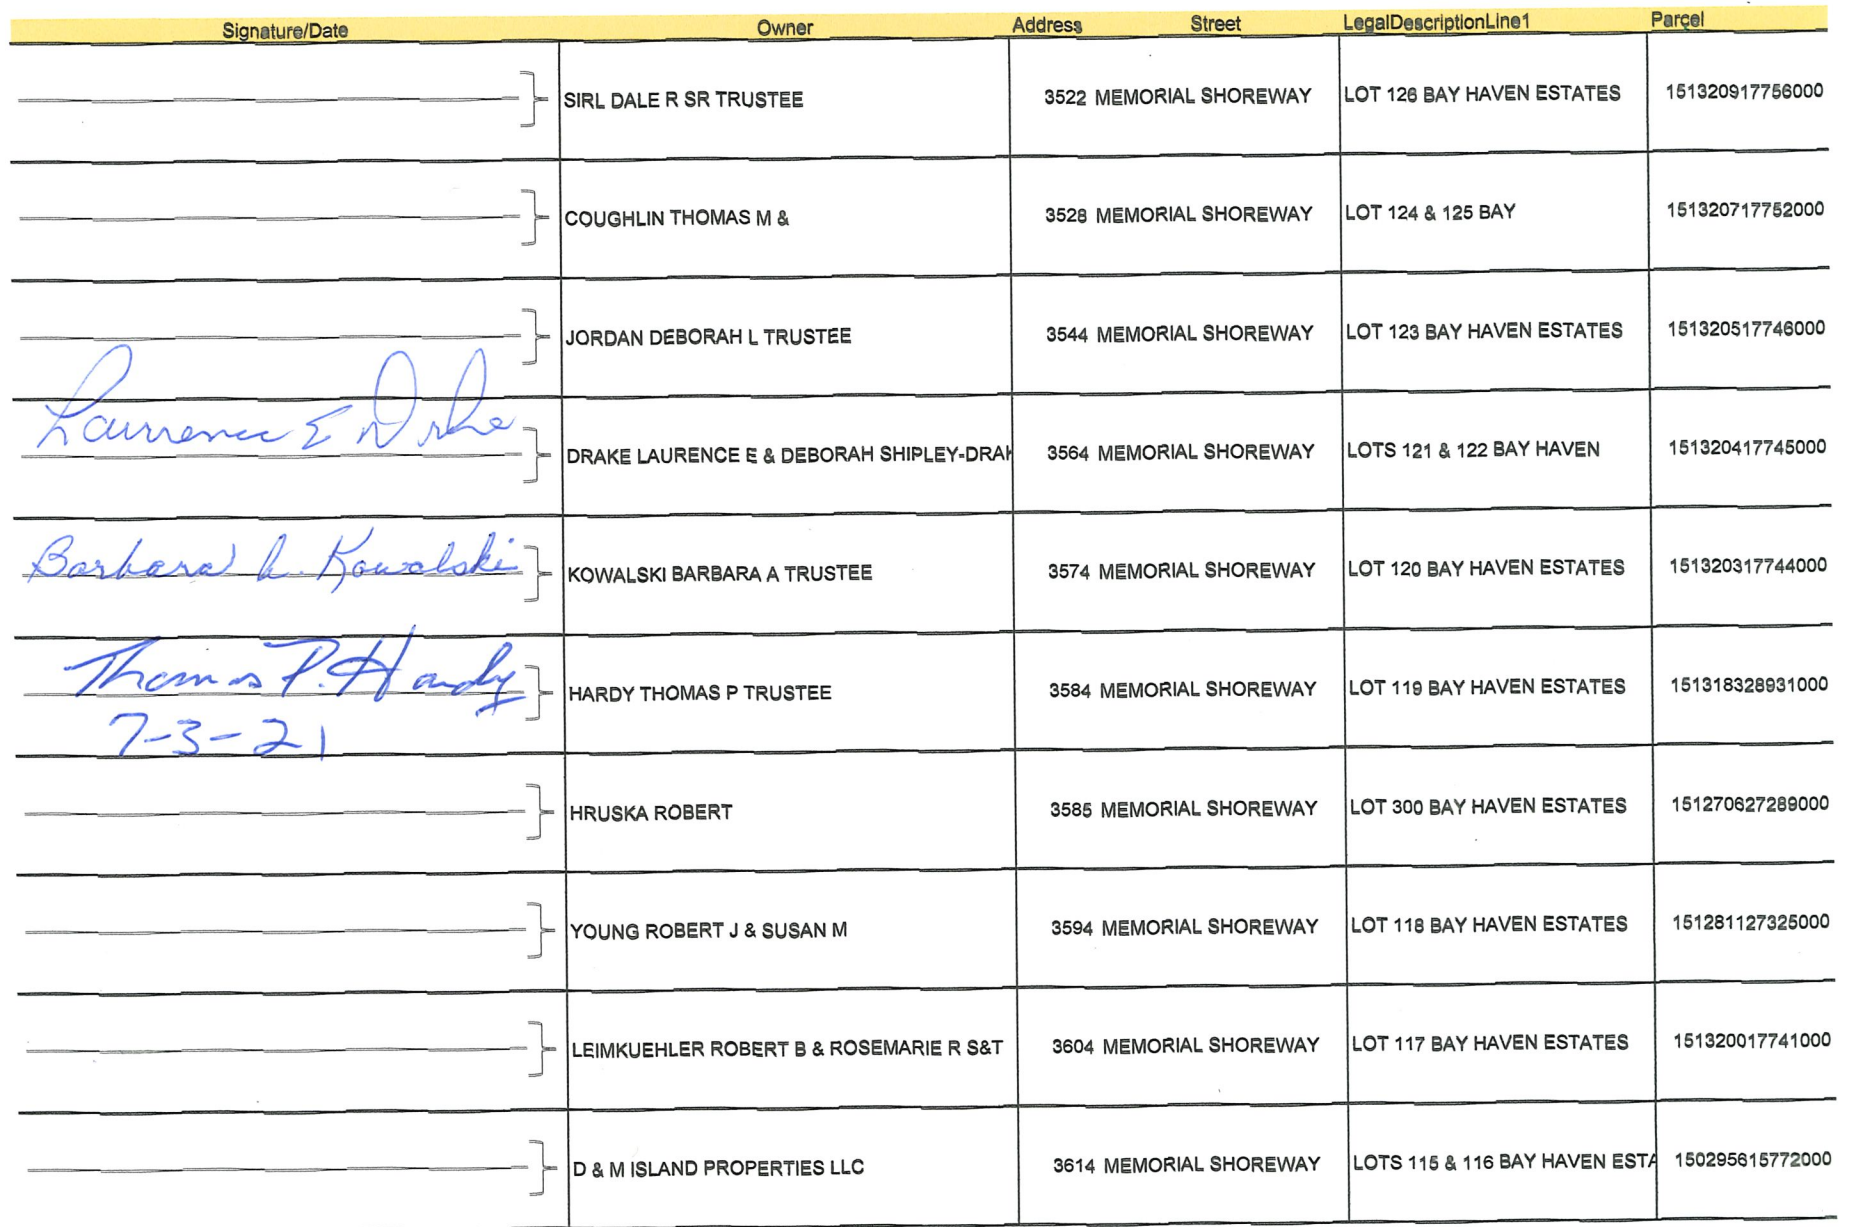 Signature/Date Owner Address Street LegalDescriptionLine1 Parcel
SIRL DALE R SR TRUSTEE 3522 MEMORIAL SHOREWAY LOT 126 BAY HAVEN ESTATES 151320917756000
COUGHLIN THOMAS M & 3528 MEMORIAL SHOREWAY LOT 124 & 125 BAY 151320717752000
JORDAN DEBORAH L TRUSTEE 3544 MEMORIAL SHOREWAY LOT 123 BAY HAVEN ESTATES 151320517746000
Laurence E Drake DRAKE LAURENCE E & DEBORAH SHIPLEY-DRAK 3564 MEMORIAL SHOREWAY LOTS 121 & 122 BAY HAVEN 151320417745000
Barbara A. Kowalski KOWALSKI BARBARA A TRUSTEE 3574 MEMORIAL SHOREWAY LOT 120 BAY HAVEN ESTATES 151320317744000
Thomas P. Hardy HARDY THOMAS P TRUSTEE 3584 MEMORIAL SHOREWAY LOT 119 BAY HAVEN ESTATES 151318328931000
7-3-21
HRUSKA ROBERT 3585 MEMORIAL SHOREWAY LOT 300 BAY HAVEN ESTATES 151270627289000
YOUNG ROBERT J & SUSAN M 3594 MEMORIAL SHOREWAY LOT 118 BAY HAVEN ESTATES 151281127325000
LEIMKUEHLER ROBERT B & ROSEMARIE R S&T 3604 MEMORIAL SHOREWAY LOT 117 BAY HAVEN ESTATES 151320017741000
D & M ISLAND PROPERTIES LLC 3614 MEMORIAL SHOREWAY LOTS 115 & 116 BAY HAVEN ESTA 150295615772000